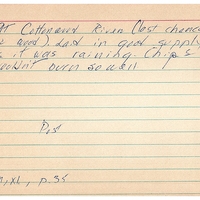 At Cottonwood River (last chance
wood). Laid in good supply
it was raining. Chips
wouldn't burn so well
P. st
, XL, p. 35